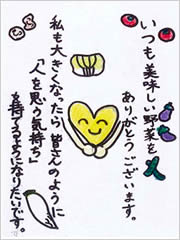 いつも美味しい野菜を
ありがとうございます。
私も大きくなったら皆さんのように
「人を思う気持ち」
を持てるようになりたいです。